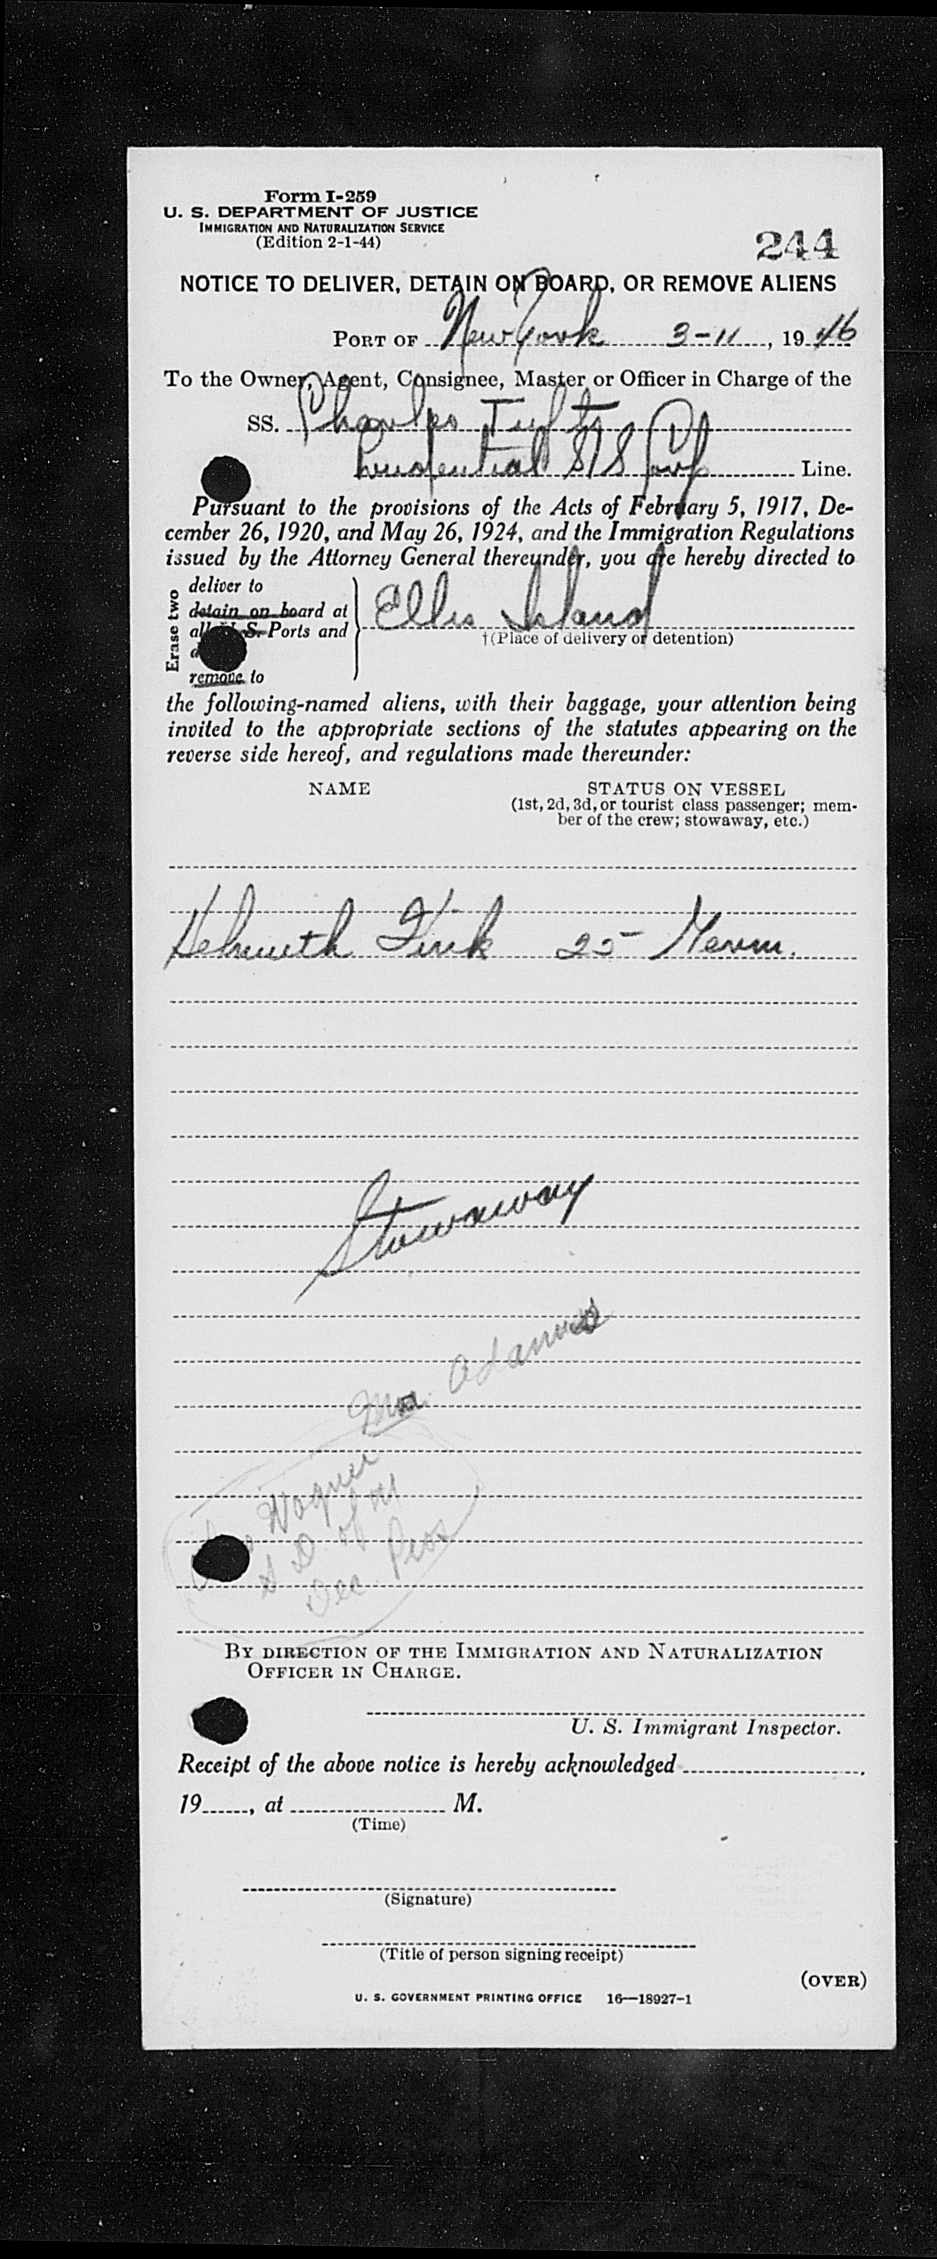 Form I-259
U. S. DEPARTMENT OF JUSTICE
IMMIGRATION AND NATURALIZATION SERVICE
(Edition 2-1-44)
244
NOTICE TO DELIVER, DETAIN ON BOARD, OR REMOVE ALIENS
PORT OF New York 3-11, 1946
To the Owner, Agent, Consignee, Master or Officer in Charge of the
SS. Charles Tufts
Prudential S/S Corp Line.
Pursuant to the provisions of the Acts of February 5, 1917, De-
cember 26, 1920, and May 26, 1924, and the Immigration Regulations
issued by the Attorney General thereunder, you are hereby directed to
Erase two
deliver to
detain on board at
all U. S. Ports and
remove to
Ellis Island
†(Place of delivery or detention)
the following-named aliens, with their baggage, your attention being
invited to the appropriate sections of the statutes appearing on the
reverse side hereof, and regulations made thereunder:
NAME
STATUS ON VESSEL
(1st, 2d, 3d, or tourist class passenger; mem-
ber of the crew; stowaway, etc.)
Helmuth Fink 25 Germ.
Stowaway
Mr. Adams
Wagner
S D of NY
Dec.
BY DIRECTION OF THE IMMIGRATION AND NATURALIZATION
OFFICER IN CHARGE.
U. S. Immigrant Inspector.
Receipt of the above notice is hereby acknowledged
19, at M.
(Time)
(Signature)
(Title of person signing receipt)
(OVER)
U. S. GOVERNMENT PRINTING OFFICE 16—18927-1